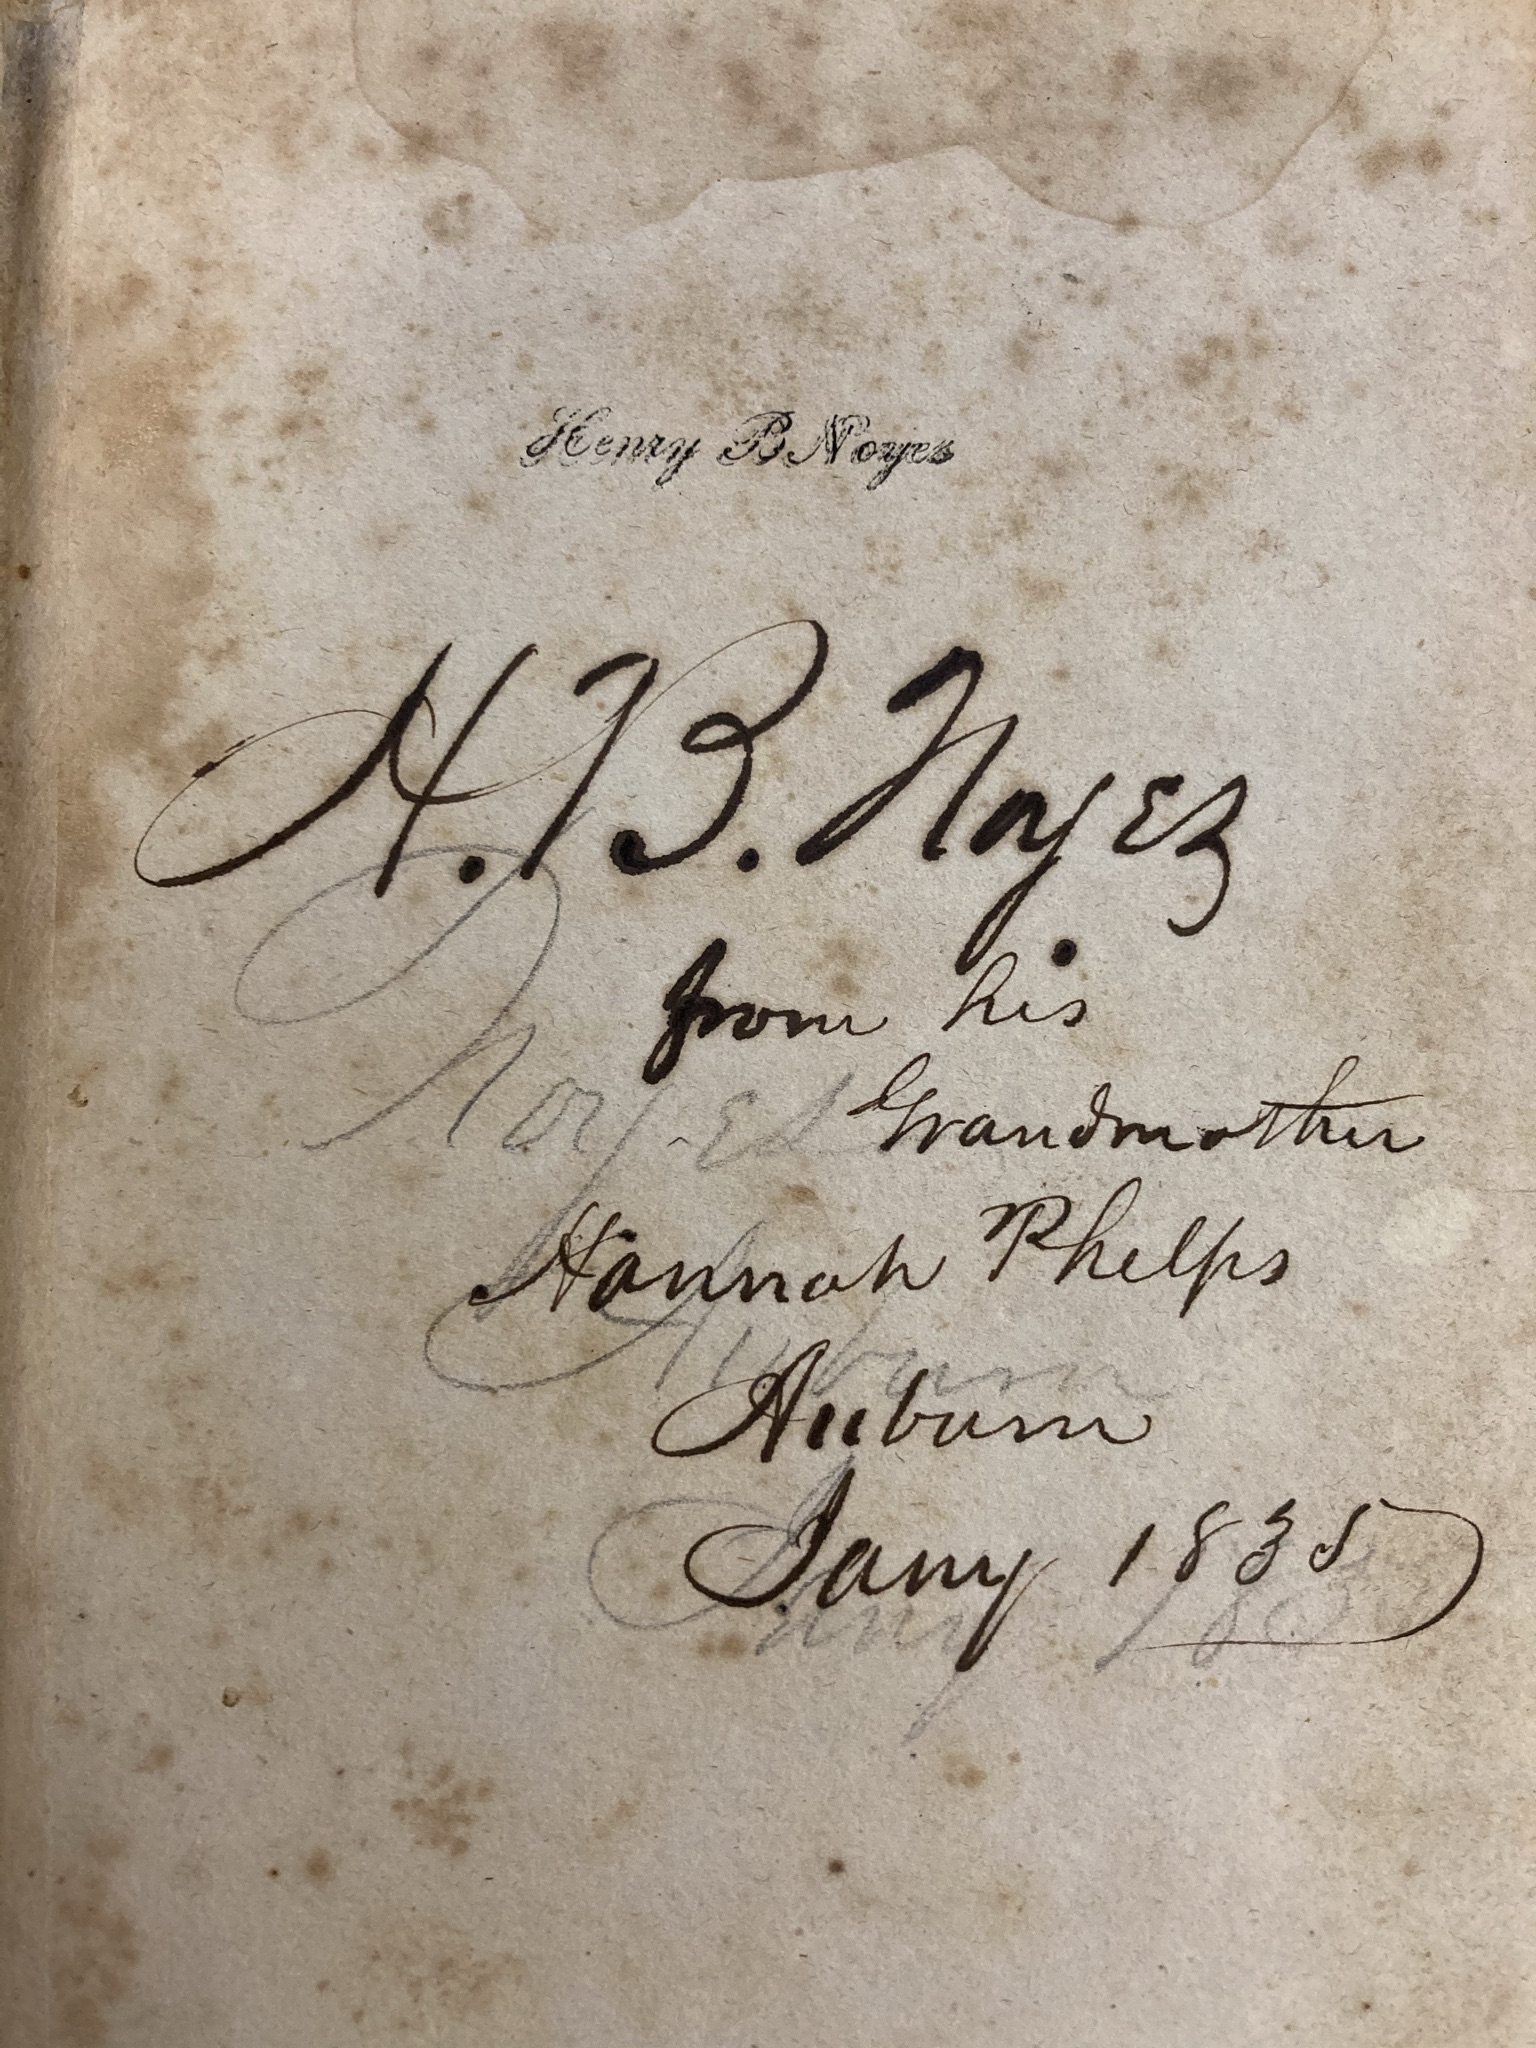 Henry B Noyes
H. B. Noyes
from his
Noyes
Grandmother
Hannah Phelps
Auburn
Auburn
Jany 1835
Jany 183